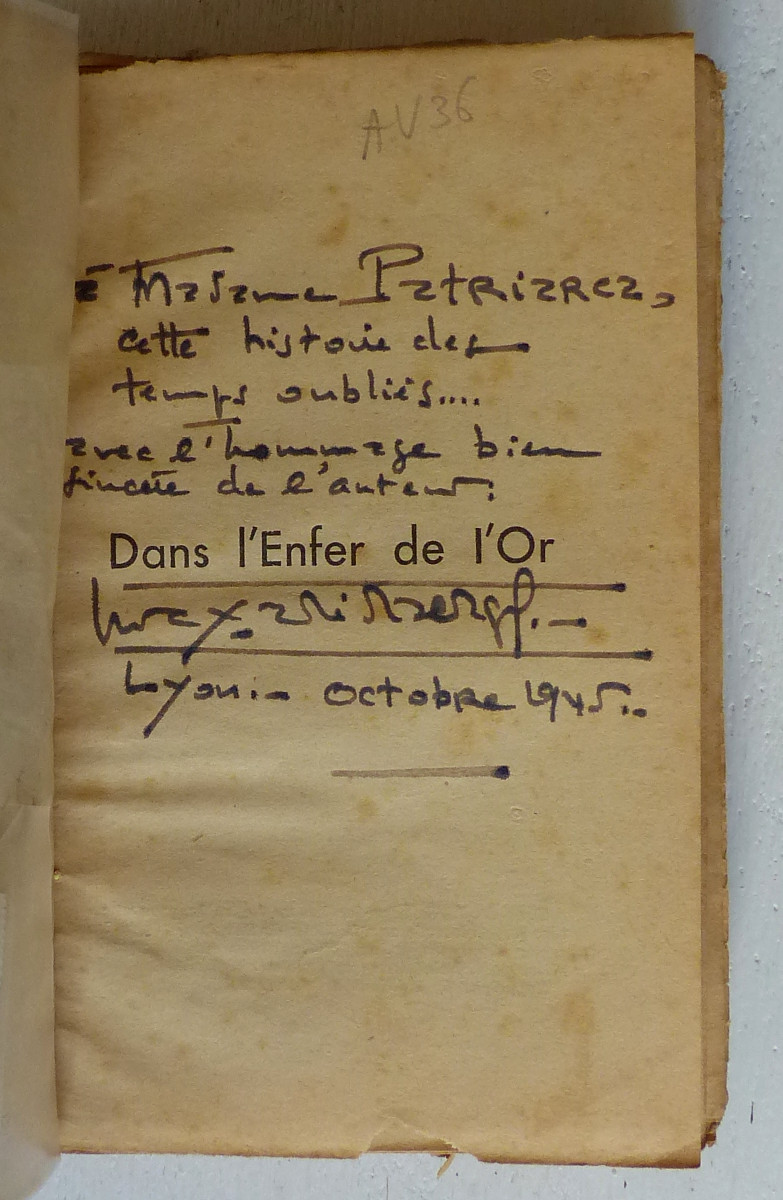 AV36
à Madame Patriarca,
cette histoire des
temps oubliés....
avec l'hommage bien
sincère de l'auteur:
Dans l'Enfer de l'Or
Lyon.- octobre 1945..